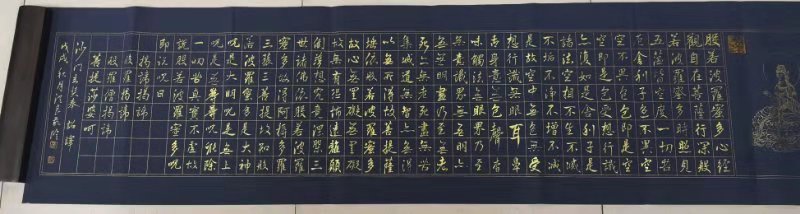 般若波羅蜜多心經
觀自在菩薩行深般
若波羅蜜多時照見
五蘊皆空度一切苦
厄舍利子色不異空
空不異色色即是空
空即是色受想行識
亦復如是舍利子是
諸法空相不生不滅
不垢不淨不增不減
是故空中無色無受
想行識無眼耳鼻
舌身意無色聲香
味觸法無眼界乃至
無意識界無無明
亦無無明盡乃至無老
死亦無老死盡無苦
集滅道無智亦無得
以無所得故菩提薩
埵依般若波羅蜜多
故心無罣礙無罣礙
故無有恐怖遠離顛
倒夢想究竟涅槃三
世諸佛依般若波羅
蜜多故得阿耨多羅
三藐三菩提故知般
若波羅蜜多是大神
呪是大明呪是無上
呪是無等等呪能除
一切苦真實不虛故
說般若波羅蜜多呪
即說呪曰
揭諦揭諦
波羅揭諦
波羅僧揭諦
菩提薩婆訶
沙門玄奘奉 詔譯
戊戌秋月